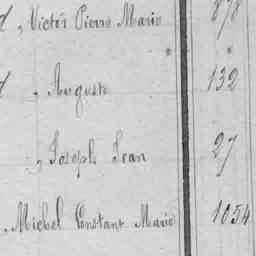 , Victor Pierre Marie 878
, Auguste 132
, Joseph Jean 27
, Michel Constant Marie 1054